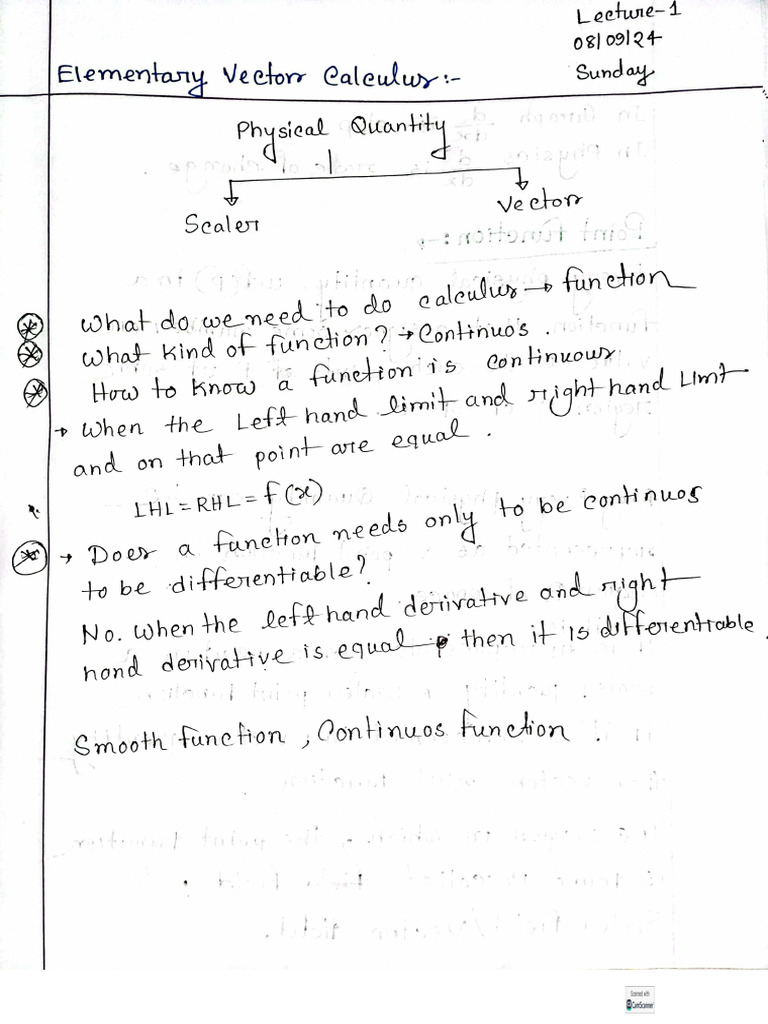 Lecture-1
08/09/24
Sunday
Elementary Vector Calculus:-
Physical Quantity
Scaler
Vector
What do we need to do calculus → function
What kind of function? → Continuos.
How to know a function is continuous
→ When the Left hand limit and right hand Limt
and on that point are equal.
LHL = RHL = f(x)
→ Does a function needs only to be continuos
to be differentiable?
No. When the left hand derivative and right
hand derivative is equal then it is differentiable.
Smooth function, Continuos function.
Scanned with
CamScanner